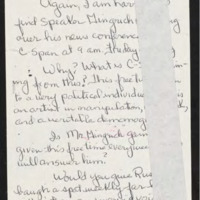 Again, I am har
find Speaker Gingrich
over his news conferen
C Span at 9 am, today
Why? What is C S
ing from this? This free tim
to a very political individua
an artist in manipulation,
and a veritable demagog
Is Mr. Gingrich gain
given this free time everywee
will answer him?
Would you give Rus
baugh a spot weekly, for